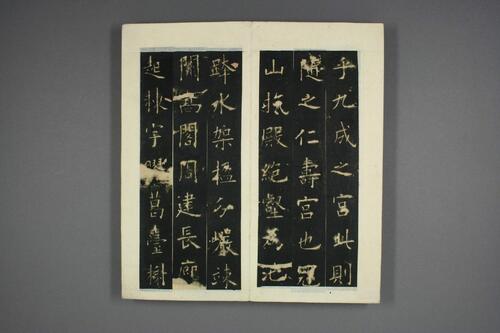 乎九成之宫此則
隨之仁壽宫也冠
山抗殿絶壑為池
跨水架楹分巖竦
闕高閣周建長廊
起棟宇膠葛臺榭